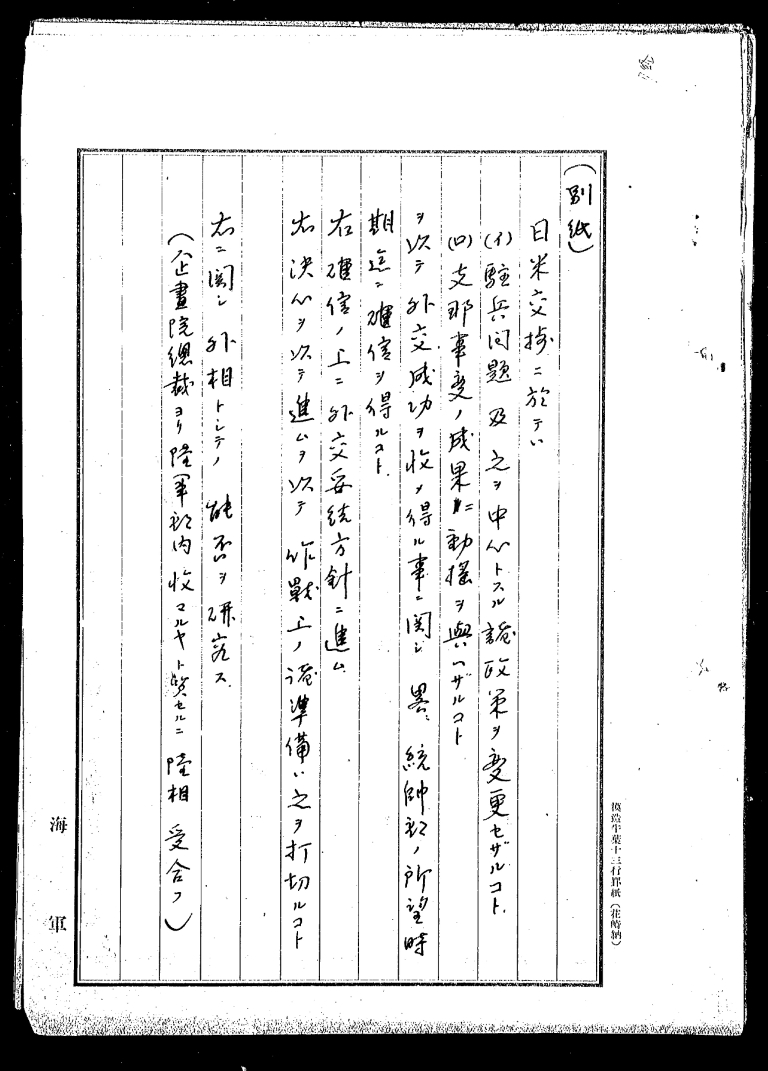 (別紙)
日米交捗ニ於テハ
(イ)駐兵问題及之ヲ中心トスル諸政策ヲ変更セザルコト.
(ロ)支那事変ノ成果ニ動揺ヲ與ヘザルコト
ヲ以テ外交成功ヲ收メ得ル事ニ関シ畧〻統帥部ノ所望時
期迄ニ確信ヲ得ルコト.
右確信ノ上ニ外交妥結方針ニ進ム
右決心ヲ以テ進ムヲ以テ作戰上ノ諸準備ハ之ヲ打切ルコト
右ニ関シ外相トシテノ能否ヲ研究ス.
(企畫院總裁ヨリ陸軍部内收マルヤト質セルニ陸相受合フ)
海軍